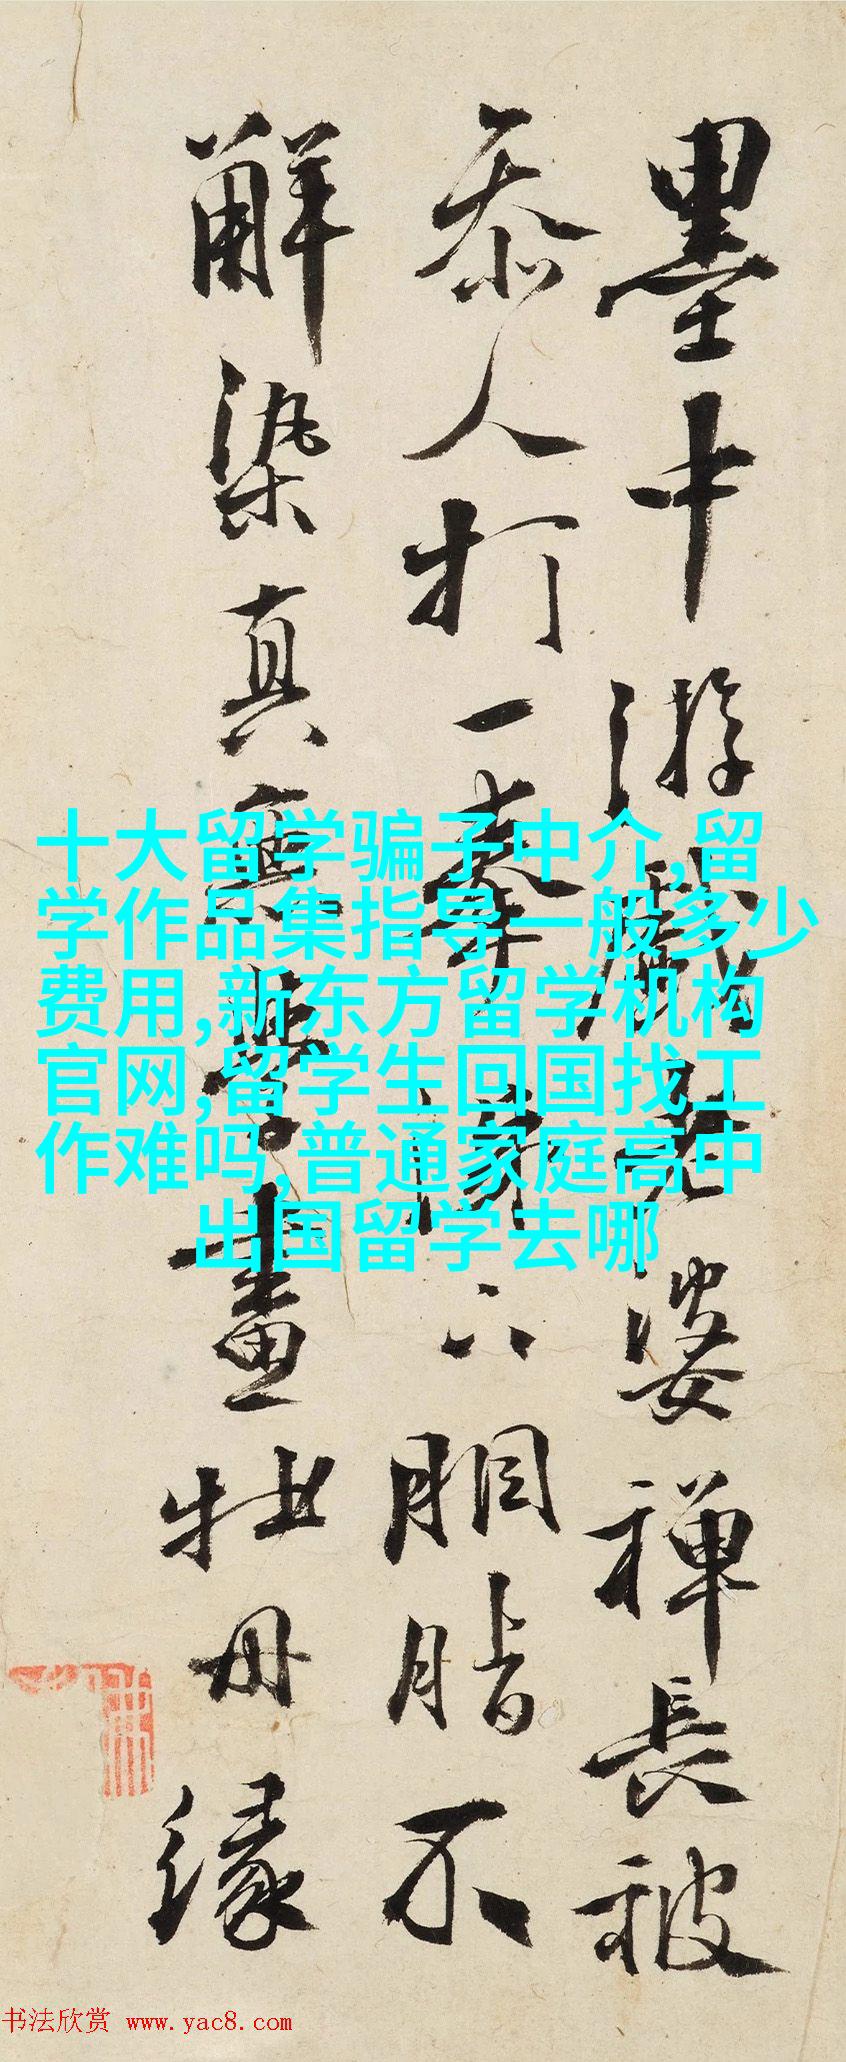 墨中游戲老婆禪長被
叅人打一拳涕下胭脂不
觧染真無學畫牡丹緣
十大留学骗子中介,留
学作品集指导一般多少
费用,新东方留学机构
官网,留学生回国找工
作难吗,普通家庭高中
出国留学去哪
书法欣赏 www.yac8.com